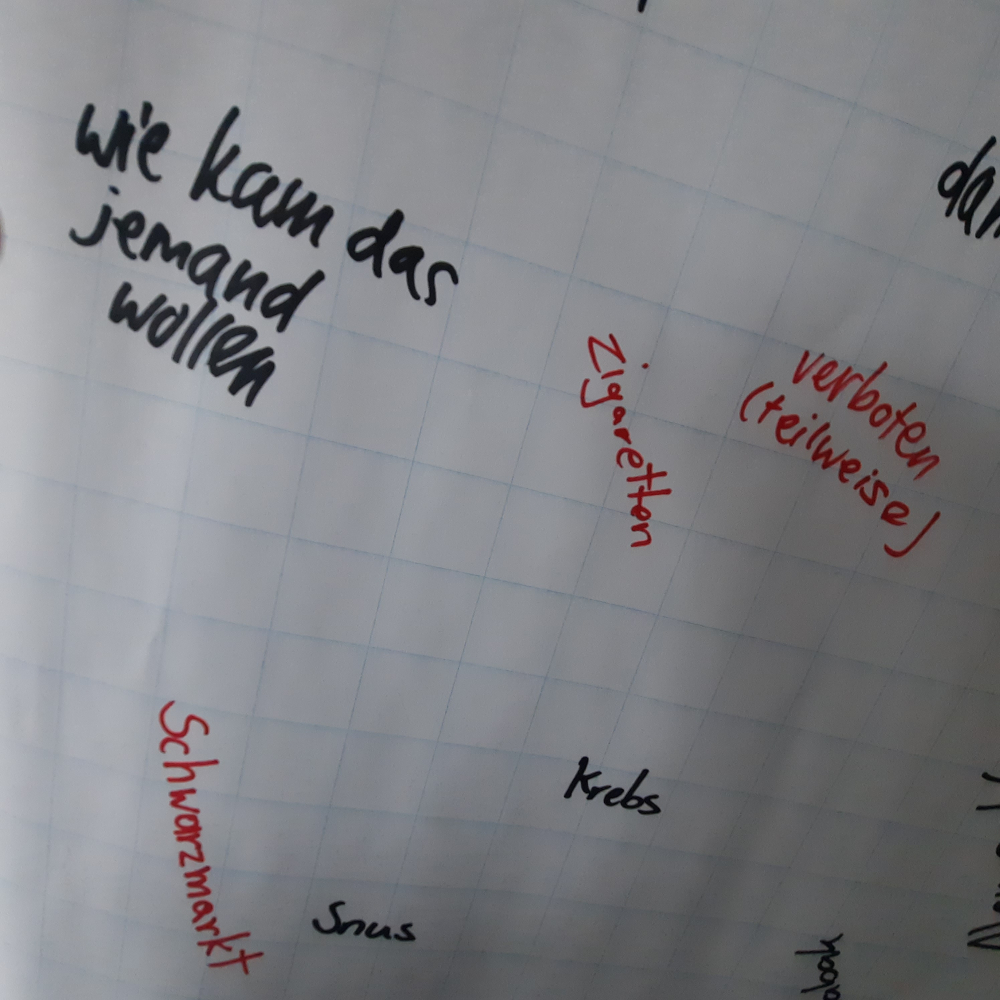 wie kam das
jemand
wollen
Zigaretten
verboten
(teilweise)
Schwarzmarkt
Krebs
Snus